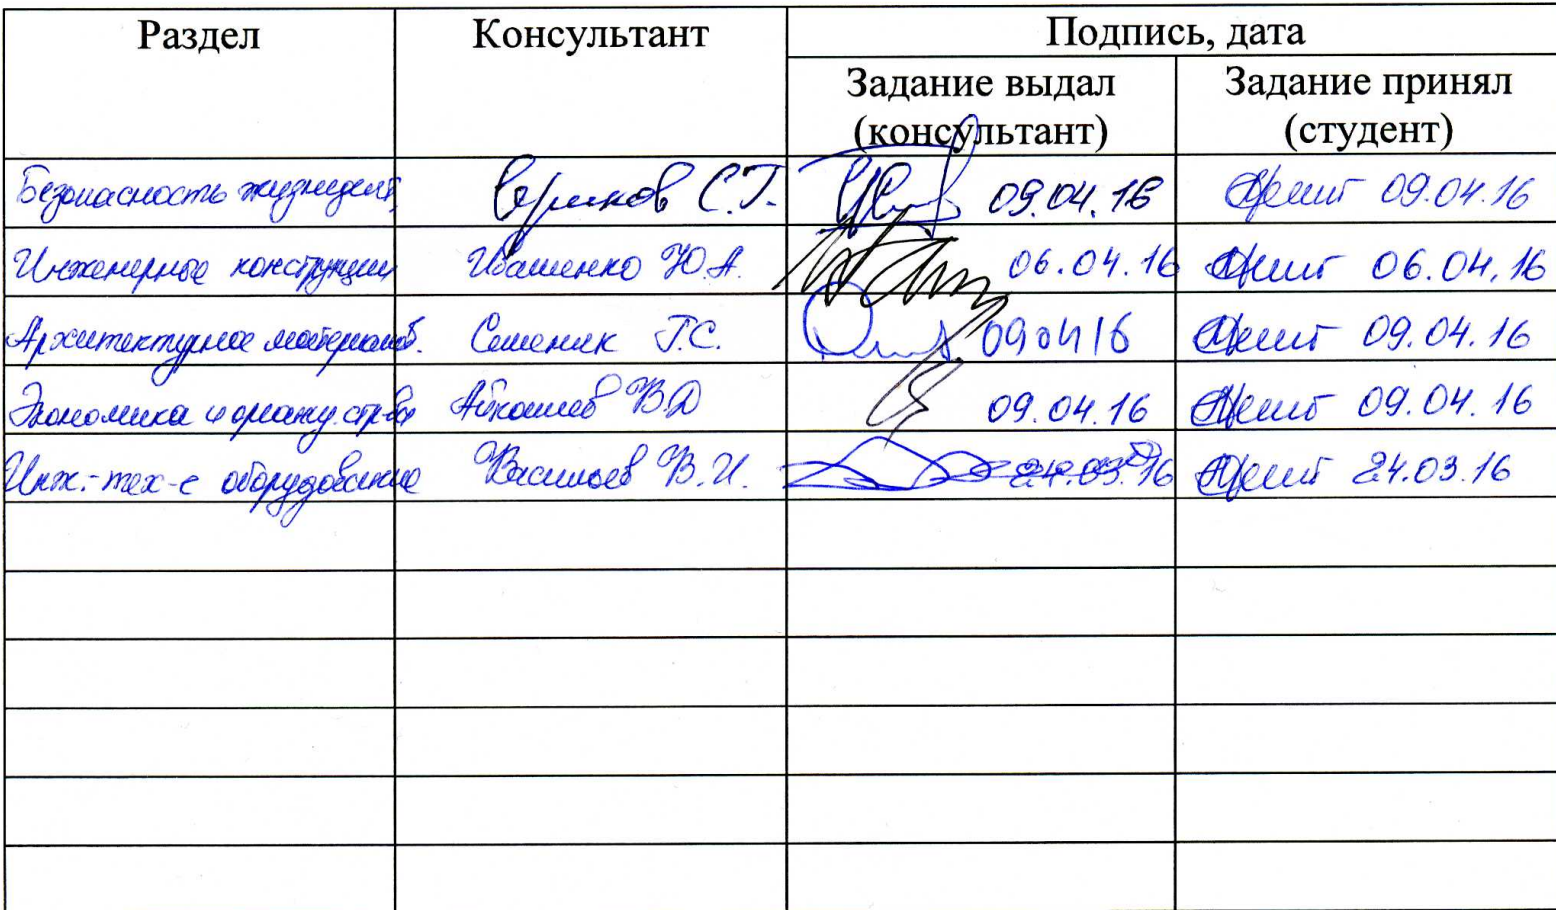 Раздел Консультант Подпись, дата
Задание выдал Задание принял
(консультант) (студент)
Безопасность жизнедеят. С.Г. 09.04.16 09.04.16
Инженерные конструкции Ивашенко Ю.А. 06.04.16 06.04.16
Архитектурное материалов. Семеняк Г.С. 090416 09.04.16
Экономика и организ. стр-ва В.Д 09.04.16 09.04.16
Инж.-тех-е оборудование Васильев В.И. 24.03.16 24.03.16